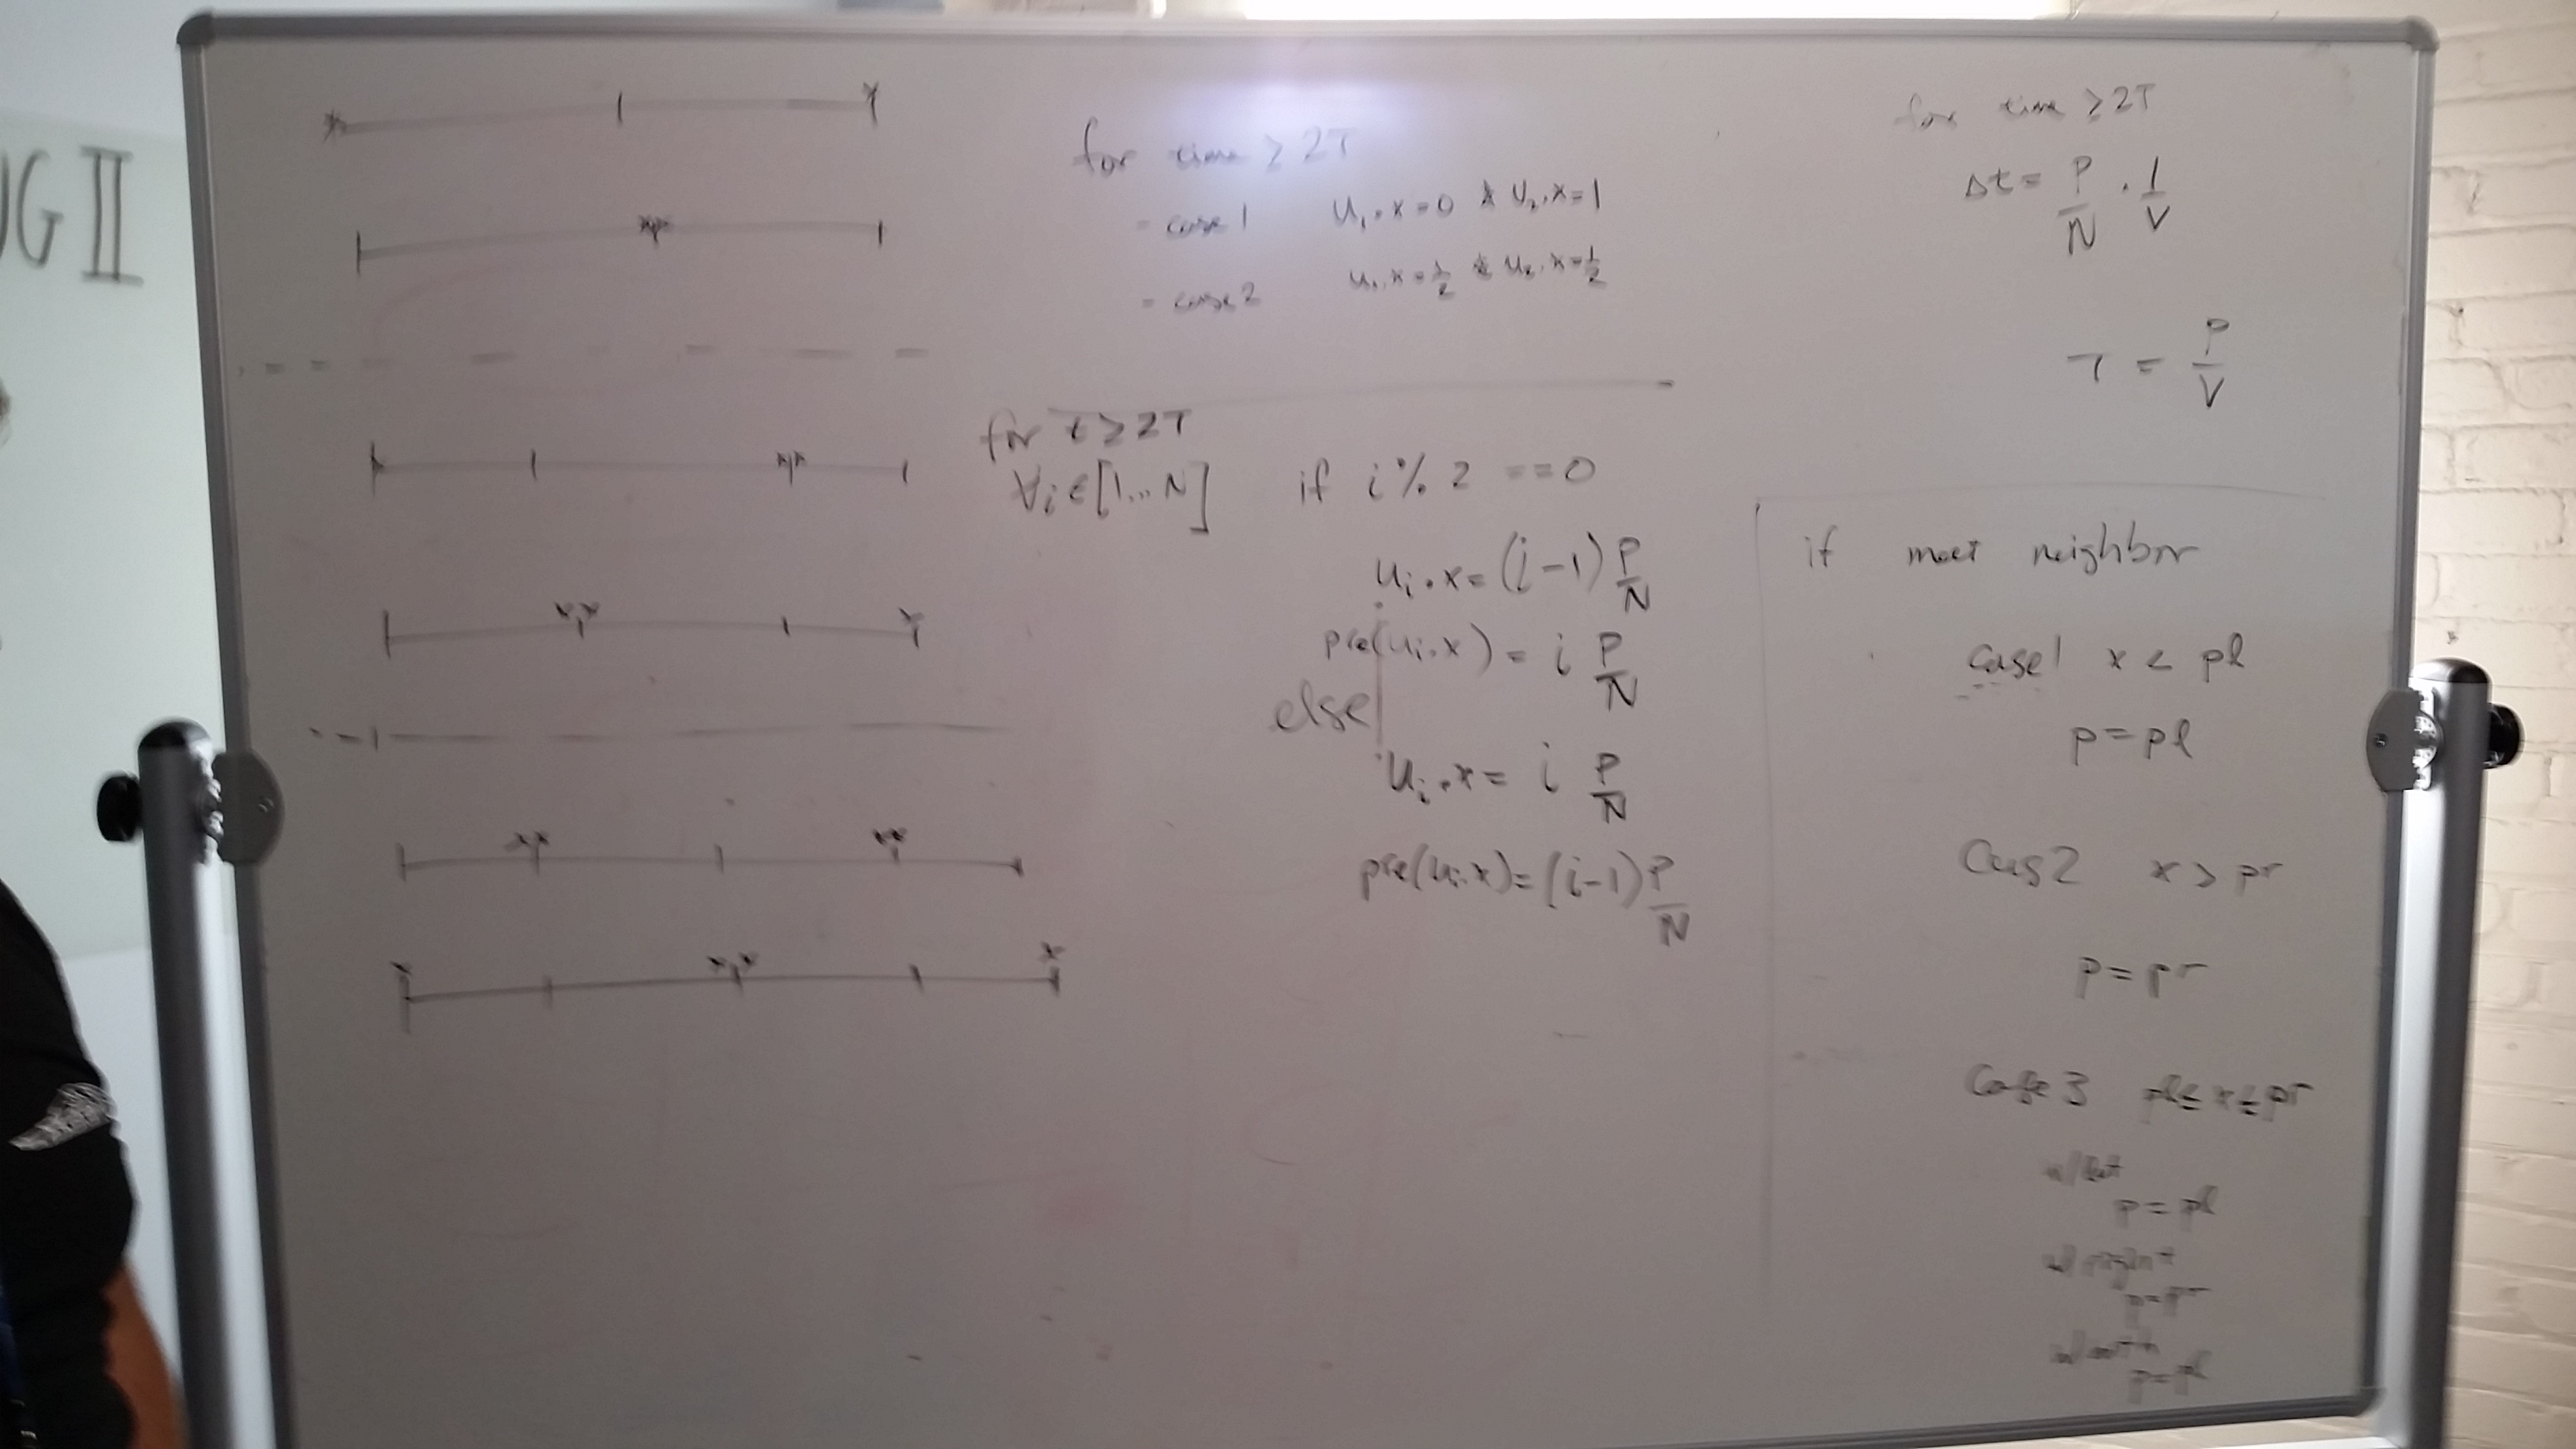 UG II
for time ≥ 2T
- case 1 u₁.x=0 & u₂.x=1
- case 2 u₁.x=1/2 & u₂.x=1/2
for t ≥ 2T
∀i∈[1...N] if i % 2 == 0
uᵢ.x = (i-1) P/N
pre(uᵢ.x) = i P/N
else
uᵢ.x = i P/N
pre(uᵢ.x) = (i-1) P/N
for time ≥ 2T
Δt = P/N · 1/V
T = P/V
if meet neighbor
case 1 x < pl
p = pl
Cas 2 x > pr
p = pr
Case 3 pl ≤ x ≤ pr
p = pl
w/ right
p = pr
p = pl